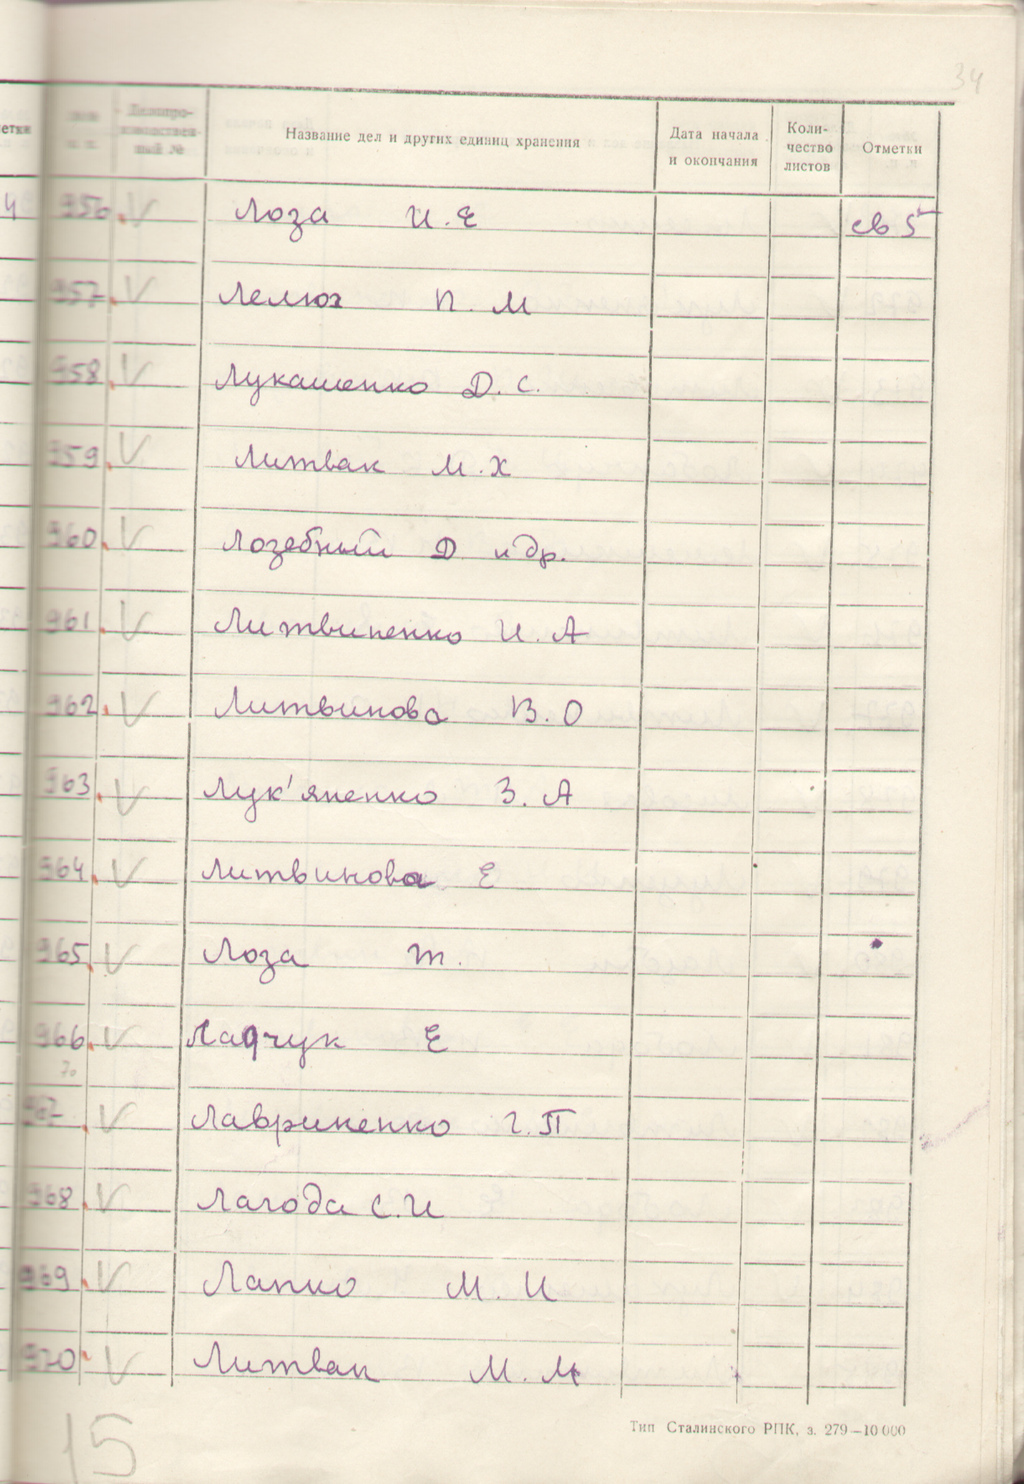 34
етки
№№ п. п.
Делопро-
изводствен-
ный №
Название дел и других единиц хранения
Дата начала
и окончания
Коли-
чество
листов
Отметки
4 956. V Лоза И. Е св 5
957. V Лелюх П. М
958. V Лукашенко Д. С.
959. V Литвак М. Х
960. V Лозебный Д и др.
961. V Литвиненко И. А
962. V Литвинова В. О
963. V Лук'яненко З. А
964. V Литвинова Е
965. V Лоза Т.
966. V Е
967. V Лавриненко Г. П
968. V Лагода С. И
969. V Лапко М. И
970. V Литвак М. М
15
Тип Сталинского РПК, з. 279—10 000